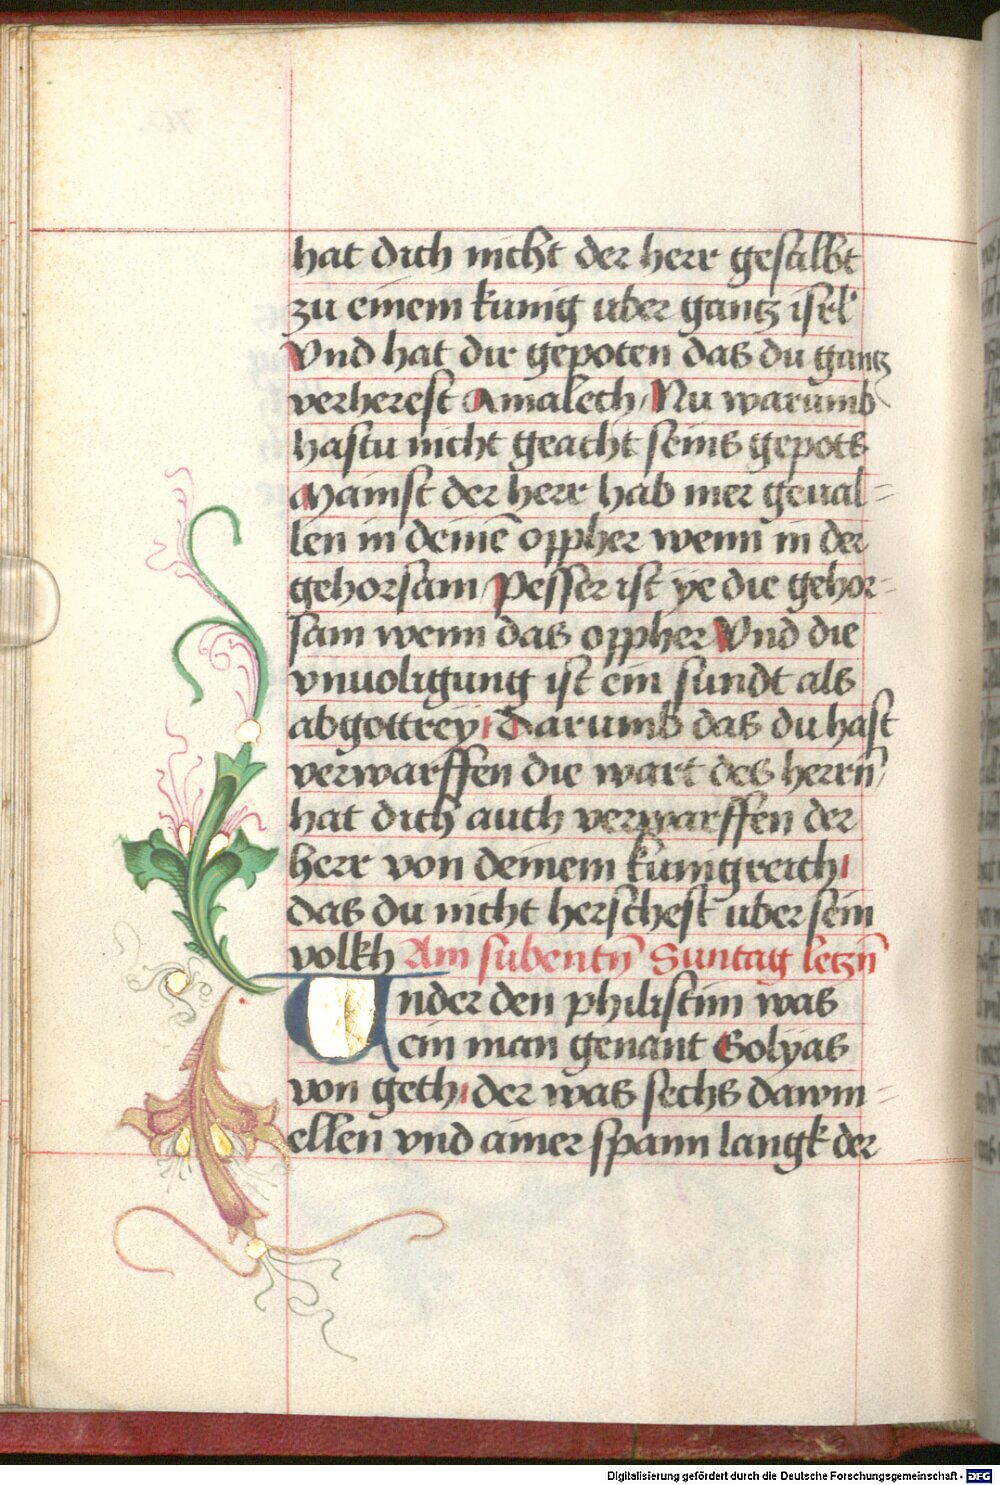 hat dich nicht der herr gesalbt
zu einem kunig uber gantz isrl̃
Vnd hat dir gepoten das du gantz
verherest Amalech / Nu warumb
hastu nicht geacht seins gepots
Mainst der herr hab mer geual=
len in deinē oppher wenn in der
gehorsam / Pesser ist ye die gehor=
sam wenn das oppher Vnd die
vnuoligung ist ein sundt als
abgottrey / Darumb das du hast
verwarffen die wart des herrñ /
hat dich auch verwarffen der
herr von deinem kunigreich /
das du nicht herschest uber sein
volkh Am subentñ Suntag letzñ
Under den philistim was
ein man genant Golyas
von geth / der was sechs dawm=
ellen vnd ainer spann langk der
Digitalisierung gefördert durch die Deutsche Forschungsgemeinschaft - DFG